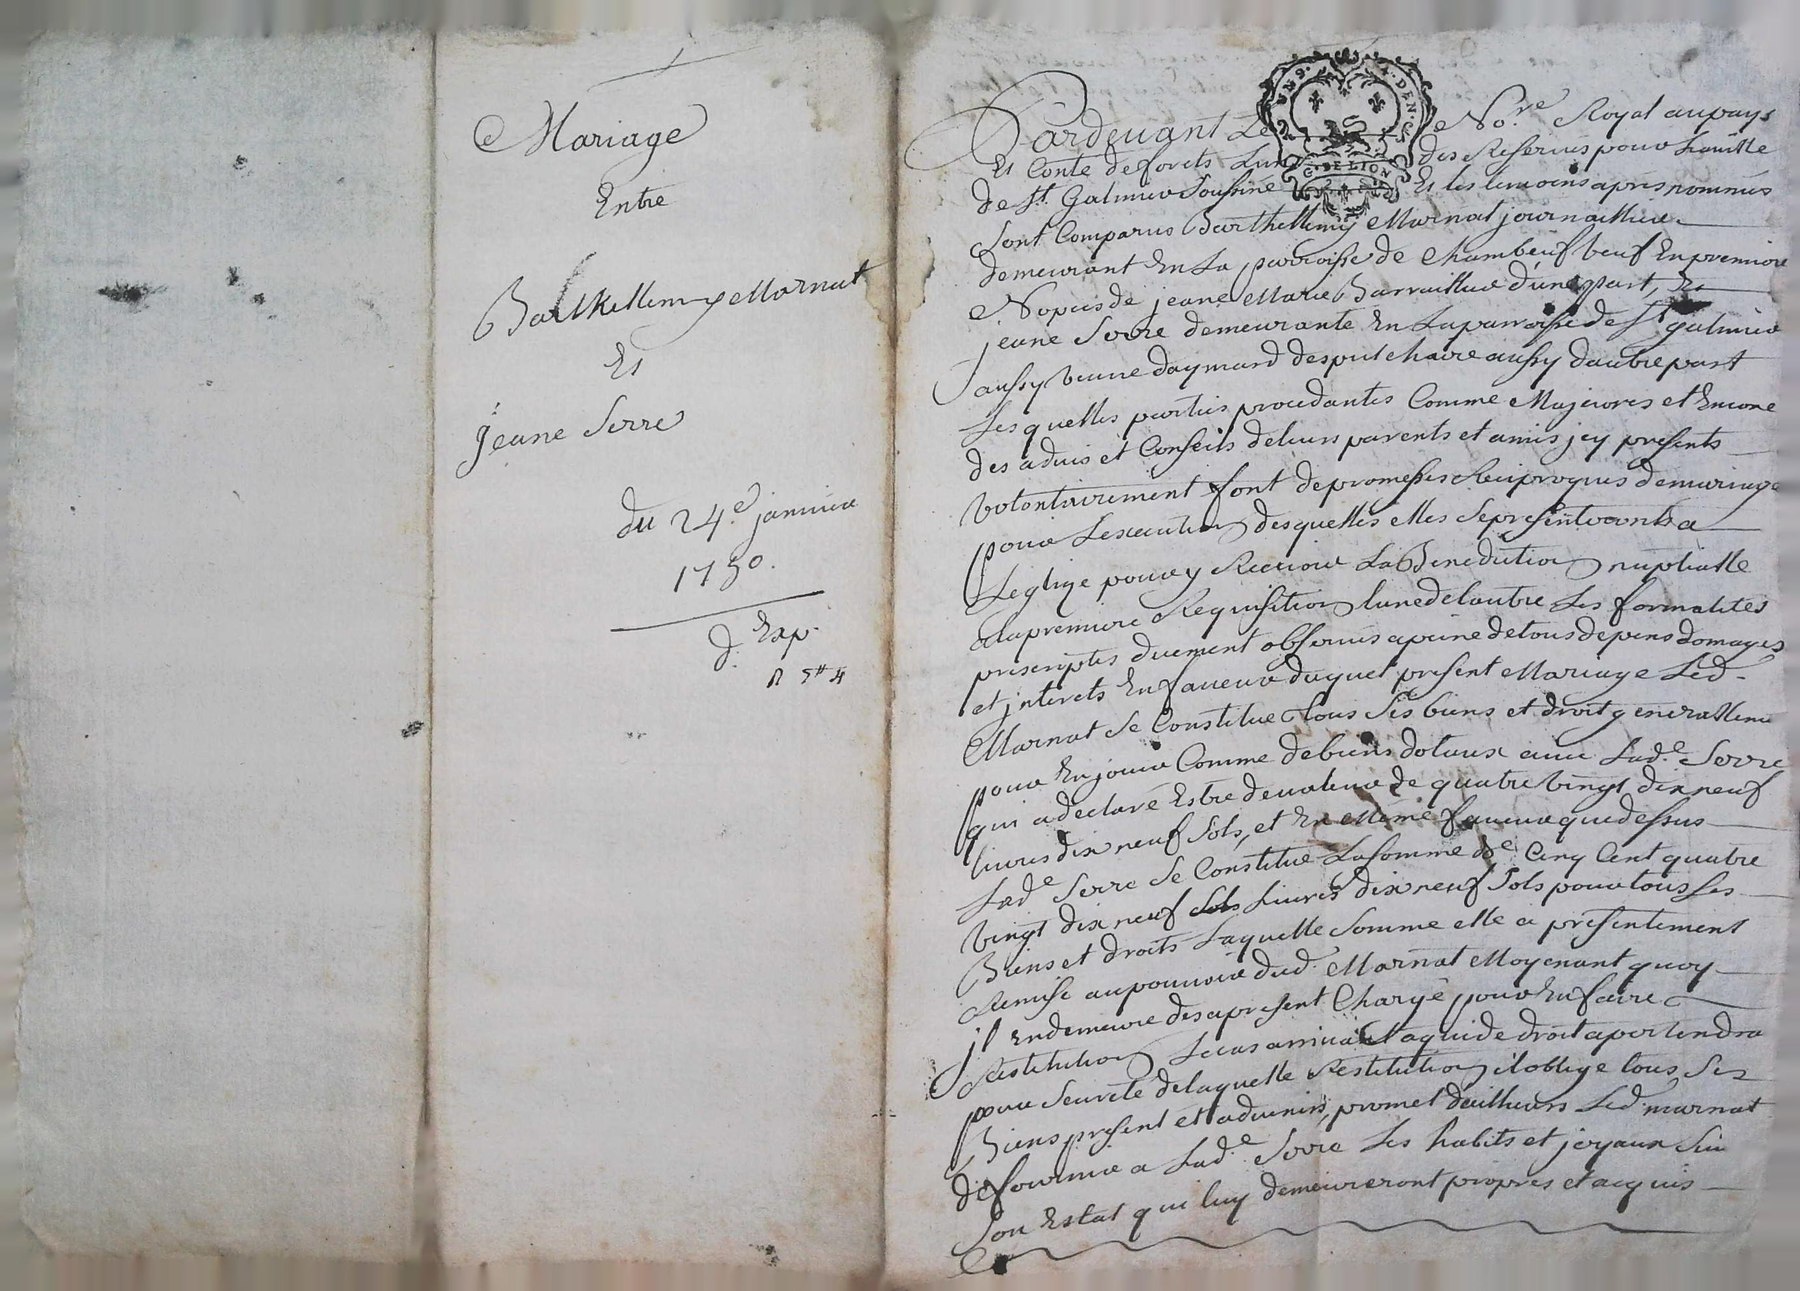 Mariage
Entre
Barthellemy Marnat
Et
Jeane Serre
du 24e janvier
1750.
d. Exp.
Pardevant Le Nore. Royal au pays
Et Conte deforets Lun des Reservés pour la ville
de St. Galmier Soussiné Et les temoins apres nommés
G. DE LION
Sont Comparus Barthellemy Marnat journaillier
demeurant En La parroisse de Chambeuf veuf En premiere
Nopces de jeane Marie Barraillier d'une part, Et
jeane Serre demeurante En La parroisse de St galmier
aussy veuve daymard desputchaire aussy dautre part
Lesquelles parties procedantes Comme Majeures et Encore
des advis et Conseils de leurs parents et amis jcy presents
volontairement font de promesses Reciproques de mariage
pour Lexecution desquelles elles se presenteront a
Leglize pour y Recevoir La Benediction nuptialle
a la premiere Requisition lune de lautre Les formalités
prescriptes duement observés a peine de tous depens domages
et jnterets En faveur duquel present Mariage Led.
Marnat Se Constitue tous Ses biens et droit generallemt
pour En jouir Comme de biens dotaux avec Lade. Serre
qui a declaré Estre de valeur de quatre vingt dix neuf
livres dix neuf Sols, et En Meme faveur que dessus
Lade Serre Se Constitue La Somme de Cinq Cent quatre
vingt dix neuf Sols Livres dix neuf Sols pour tous Ses
Biens et droits Laquelle Somme elle a presentement
Remise au pouvoir dud. Marnat Moyenant quoy
jl En demeure des a present Chargé pour En faire
Restitution Le cas arrivant a qui de droit apertendra
pour Seureté de laquelle Restitution il oblige tous Ses
Biens present et advenirs, promet dailleurs Led. marnat
de fournir a Lade. Serre Les habits et joyaux Sui
Son Estat qui luy demeureront propres et acquis